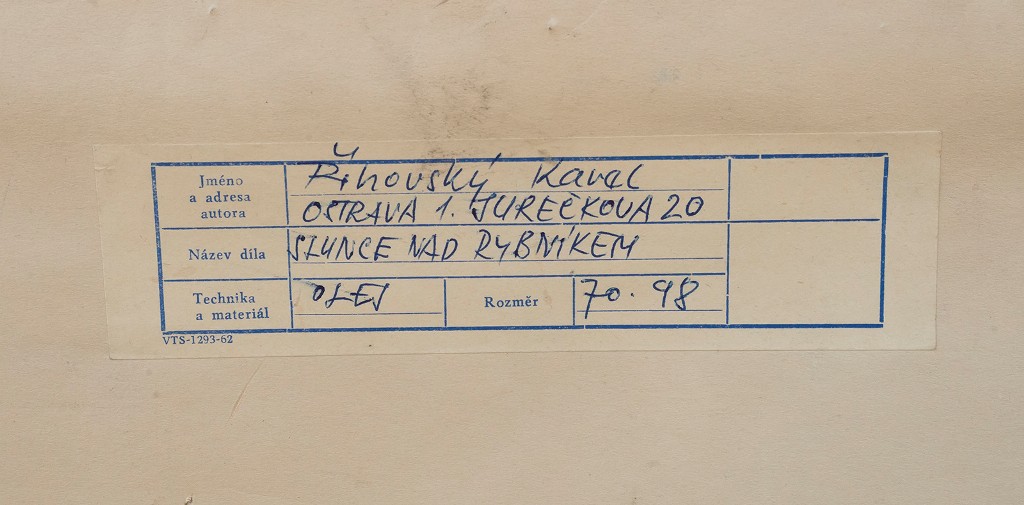 Jméno
a adresa
autora
Řihovský Karel
OSTRAVA 1. JUREČKOVA 20
Název díla
SLUNCE NAD RYBNÍKEM
Technika
a materiál
OLEJ
Rozměr
70. 98
VTS-1293-62